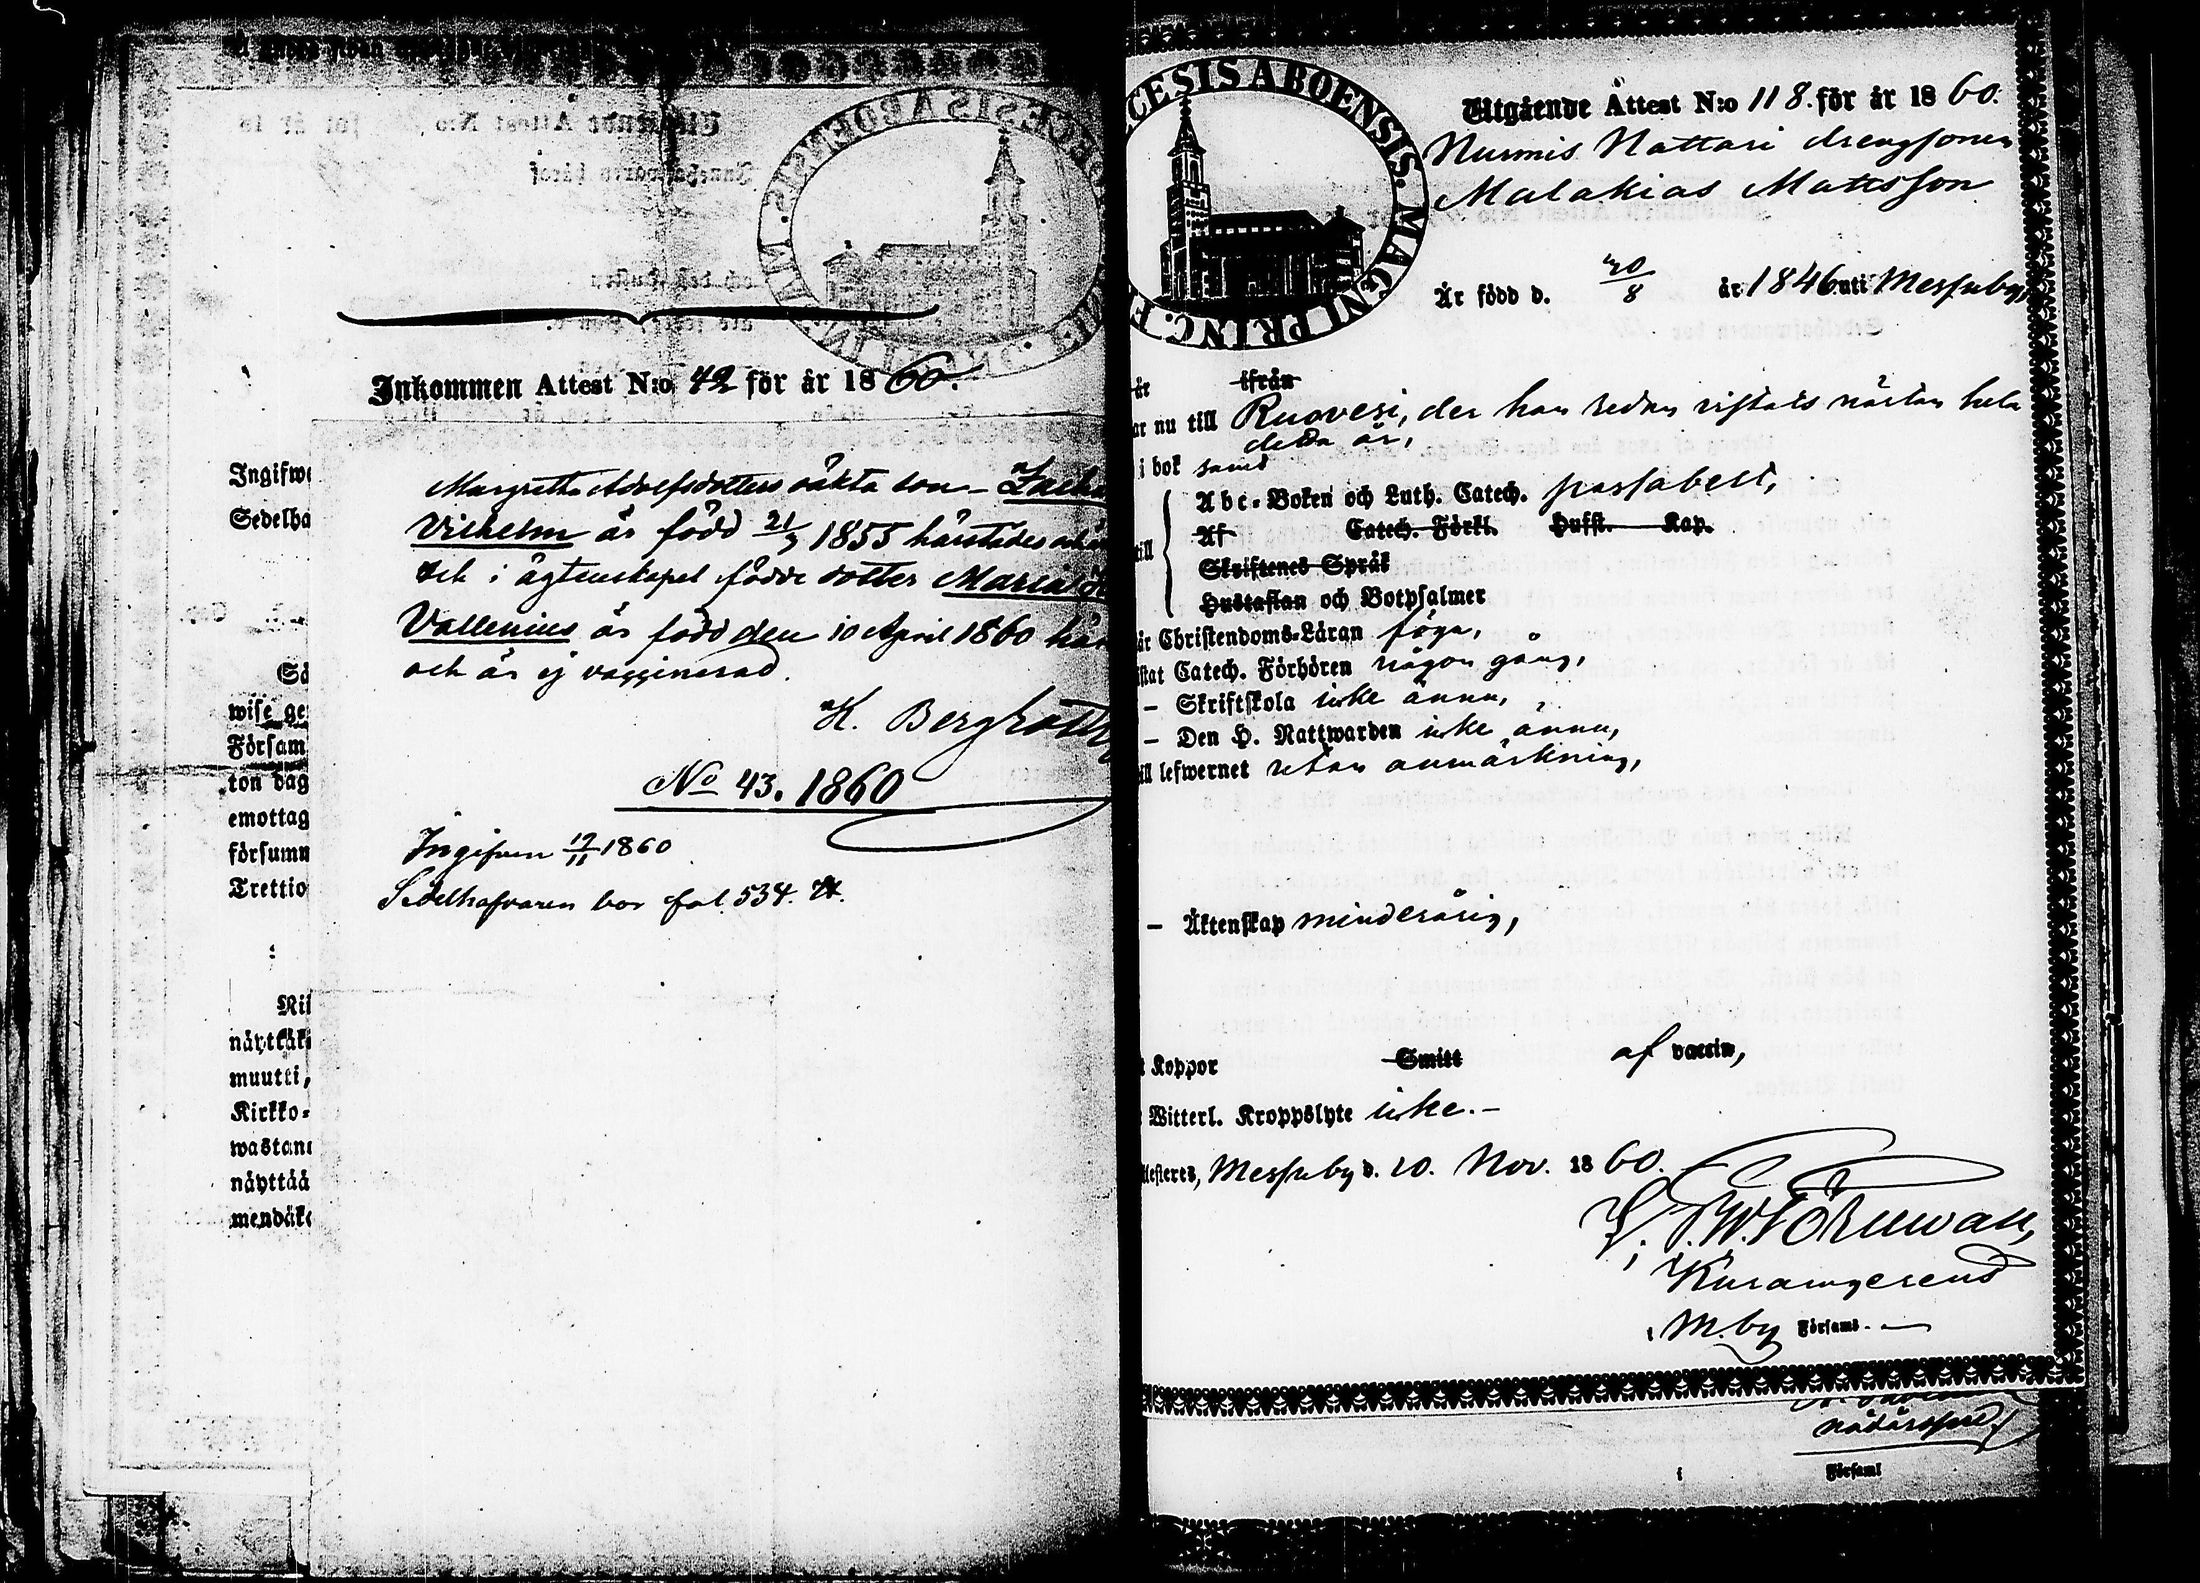 Inkommen Attest N:o 42 för år 1860.
Margretha Adolfsdotters oäkta son
Vilhelm är född 21/7 1855 härstädes
och i ägtenskapet födde dotter Maria
Vallenius är född den 10 April 1860
och är ej vaccinerad.
K. Bergroth
No 43. 1860
Ingifven 19/11 1860
Sedelhafvaren bor fol. 534.
Ingifw
Sedelha
wise ge
Försam
ton dag
emottag
försumm
Trettio
näyttää
muutti,
Kirkko-
wastan
näyttää
mendäk
CESIS ABOENSIS. MAGNI PRINC. F
Utgående Attest N:o 118. för år 1860.
Nurmis Nattari drengsonen
Malakias Mattsson
Är född d. 20/8 år 1846 uti Messuby,
ifrån
nu till Ruovesi, der han redan vistats nästan hela
detta år,
i bok samt
Abc-Boken och Luth. Catech. passabelt,
Af Catech. Förkl. Hufst. Kap.
Skriftenes Språk
Hustaflan och Botpsalmer
är Christendoms-Läran föga,
Catech. Förhören någon gång,
– Skriftskola icke ännu,
– Den H. Nattwarden icke ännu,
till lefwernet utan anmärkning,
– Äktenskap minderårig,
Koppor Smitt af vaccin,
Witterl. Kroppslyte icke.–
Messuby d. 20. Nov. 1860.
Törnwall,
M.by Församl.
i Församl